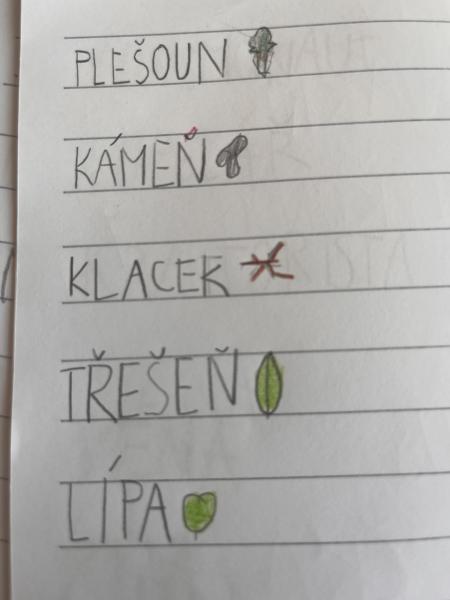 PLEŠOUN
KÁMEŇ
KLACEK
TŘEŠEŇ
LÍPA